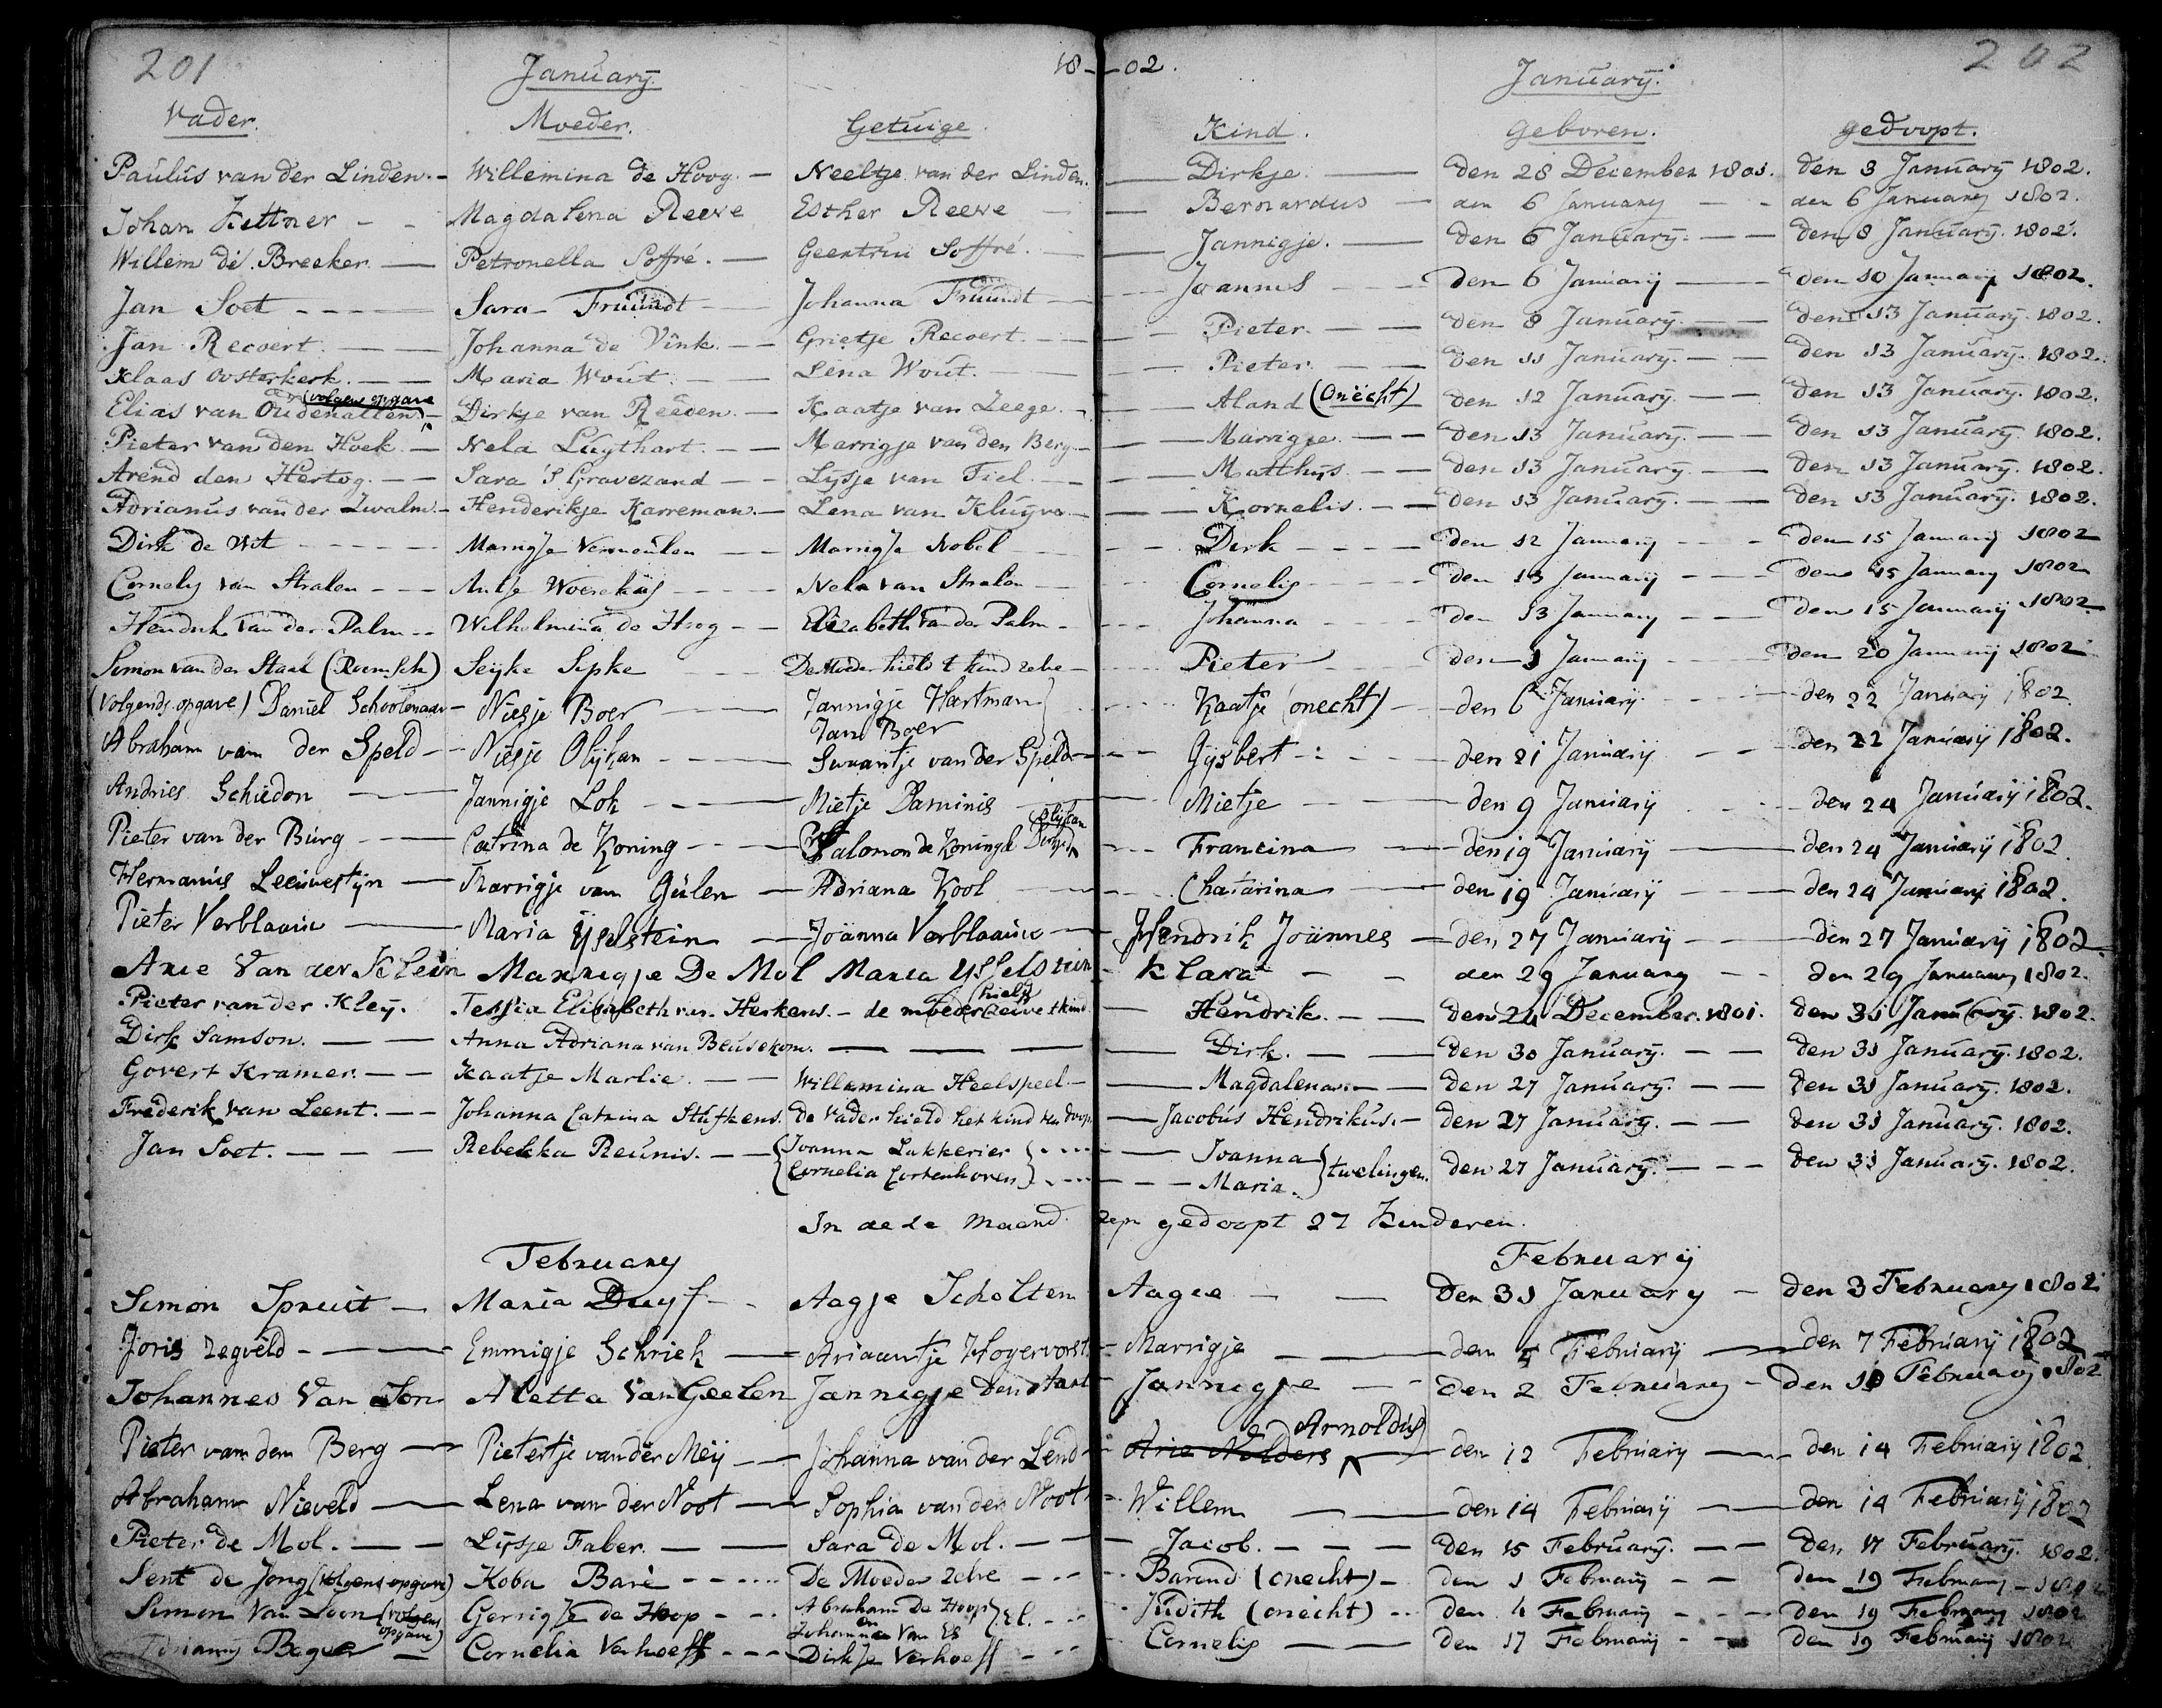 201 January. 18-02. January. 202
Vader. Moeder. Getuige. Kind. Geboren. gedoopt.
Paulus van der Linden. - Willemina de Hoog. - Neeltje van der Linden. - Dirkje. - den 28 December 1801. den 3 January 1802.
Johan Kettner - - Magdalena Reeve Esther Reeve - Bernardus - den 6 January - - den 6 January 1802.
Willem de Breeker - Petronella Soffré. - Geertrui Soffré. - Jannigje. - den 6 January. - - den 8 January. 1802.
Jan Soet - - - - Sara Fruundt - Johanna Fruundt - Joannes - - - den 6 January - den 10 January 1802.
Jan Recoert. - - Johanna de Vink. - - Grietje Recoert. - - Pieter. - - den 8 January. - - den 13 January. 1802.
Klaas Oosterkerk. - - Maria Wout. - - Lena Wout. - - Pieter. - - den 11 January. - - den 13 January. 1802.
Elias van Oudenallen (volgens opgave) - Dirkje van Reeden. - Kaatje van Zeege. - - Aland (Onëcht) den 12 January. - - den 13 January. 1802.
Pieter van den Hoek. - Nela Luythart. - - Marrigje van den Berg. - - Marrigje. - - den 13 January. - - den 13 January. 1802.
Arend den Hertog. - - Sara 'S Gravezand - - Lysje van Tiel. - - Matthys. - - den 13 January. - - den 13 January. 1802.
Adrianus van der Zwalm. - Henderikje Karreman. - Lena van Kluyve. - - Kornelis. - - den 13 January. - - den 13 January. 1802.
Dirk de Wit - - - Marrigje Vermeulen - - Marrigje Nobel - - - Dirk - - - - den 12 January - - - den 15 January 1802
Cornelis van Stralen - - - Antje - - - Nela van Stralen - - Cornelis - - - - den 13 January - - - den 15 January 1802
Hendrik van der Palm - - Wilhelmina de Hoog - - Elizabeth van der Palm - - Johanna - - - den 13 January - - den 15 January 1802
Simon van der Staal (Roomsch) Seyke Sipke - - - De Moeder hield t kind zelve - - Pieter - - - den 1 January - - den 20 January 1802
(Volgends opgave) Daniel Schoolenaar - Niesje Boer - Jannigje Hartman } Kaatje (onecht) - - den 6 January - - den 22 January 1802
Jan Boer
Abraham van der Speld - - Niesje Olykan - - Swaantje van der Speld - - Gysbert - - - den 21 January - - den 22 January 1802.
Andries Schiedon - Jannigje Lok - - Mietje Daminis - Mietje - - den 9 January - - den 24 January 1802.
Olykan
Pieter van der Burg - - Catrina de Koning - - Salomon de Koning & - - Francina - den 19 January - den 24 January 1802.
Hermanus Leeuwestyn - Marrigje van Gülen - Adriana Kool - - Chatarina - den 19 January - - den 24 January 1802.
Pieter Verblaauw - Maria Yselstein - Joänna Verblaauw - Hendrik Joännes - den 27 January - - den 27 January 1802.
Arie Van der Klein Marrigje De Mol Maria Ysselstein - Klara - - den 29 January - - den 29 January 1802.
Pieter van der Kley. Elisabeth van Herkens. - de moeder hield zelve t kind - Hendrik. - - den 24 December. 1801. den 31 January. 1802.
Dirk Samson. - - Anna Adriana van Beusekom. - - - Dirk. - - den 30 January. - - den 31 January. 1802.
Govert Kramer. - - Kaatje Marlie. - - Willemina Heelspeel. - - Magdalena. - - den 27 January. - - den 31 January. 1802.
Frederik van Leent. - - Johanna Catrina Stufkens. De Vader hield het kind ten doop. - Jacobus Hendrikus. - den 27 January. - - den 31 January. 1802.
Jan Soet. - - - Rebekka Reunis. - - { Joanna Lakkerier } - - - Joanna } twelingen. den 27 January. - - - den 31 January. 1802.
{ Cornelia Cortenhoven } - - - Maria.
In deze maend zyn gedoopt 27 Kinderen.
February February
Simon Spruit - Maria Duyf - - Aagje Scholten Aagie - - Den 31 January - Den 3 February 1802
Joris Zegveld - - Emmigje Schriek - Ariaantje Hogervorst - Marrigje - - den 5 February - den 7 February 1802
Johannes Van Son Aletta Van Geelen Jannigje - Jannigje - - Den 2 February - Den 10 February 1802
Arnoldus
Pieter van den Berg - Pietertje van der Meij - - Johanna van der Lend - Arie Nolders - den 12 February - den 14 February 1802
Abraham Nieveld - Lena van der Noot - Sophia van der Noot - Willem - - den 14 February - - den 14 February 1802
Pieter de Mol. - - Lysje Faber. - - Sara de Mol. - - Jacob. - - - den 15 February. - - den 17 February. 1802.
Sent de Jong (volgens opgave) Koba Baré - - - - De Moeder zelve - - - Barend (onecht) - den 1 February - - den 19 February - 1802
Simon Van Loon (volgens opgave) Gerrigje de Hoop - - - Abraham De Hoop en Johanna Van Es } Et. - - - Judith (onëcht) - - den 4 February - - - den 19 February 1802
Adrianus - Cornelia Verhoeff - - - Dirkje Verhoeff - - - Cornelis - - den 17 February - - den 19 February 1802